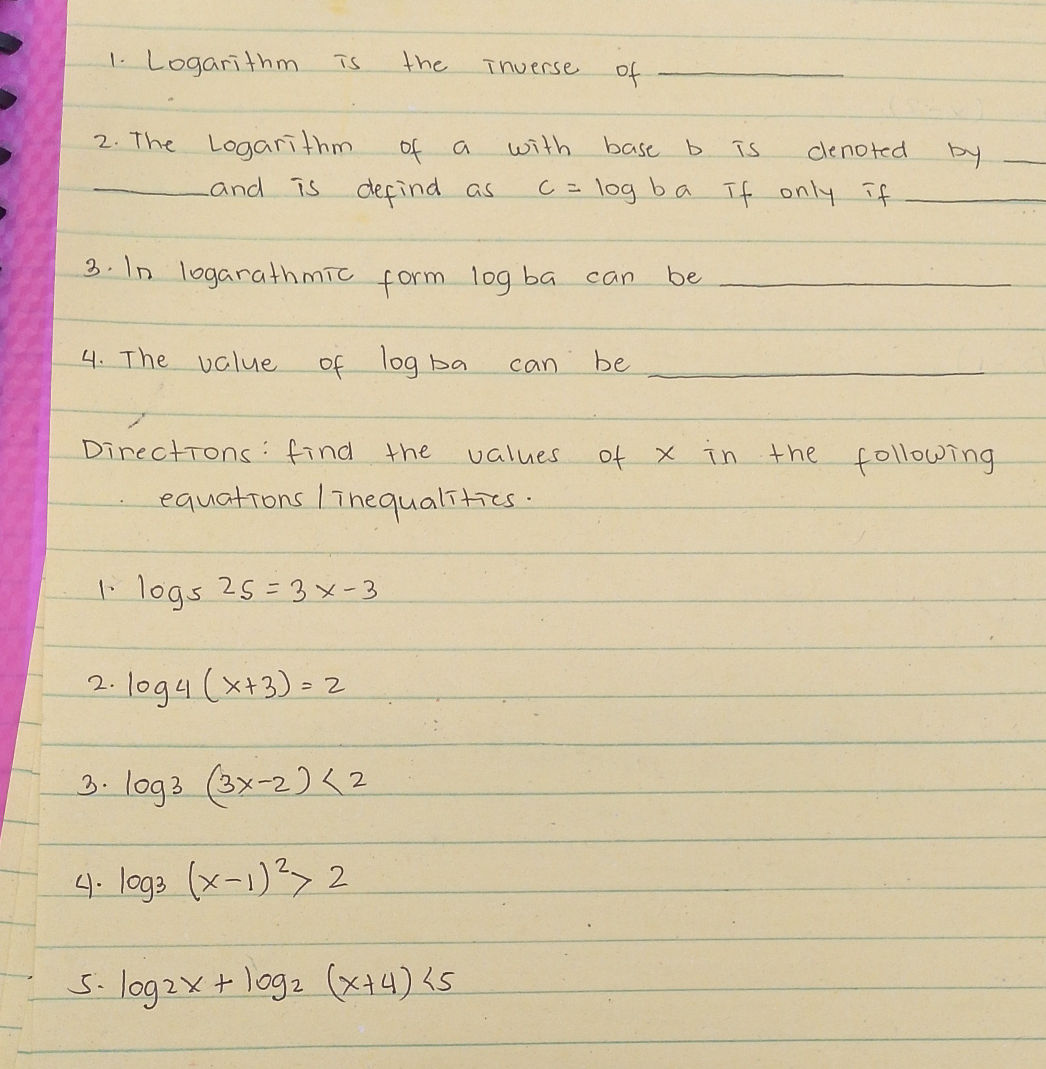 1. Logarithm is the inverse of ____________
2. The Logarithm of a with base b is denoted by ___
________and is defind as c = log b a if only if __________
3. In logarathmic form log ba can be ____________________
4. The value of log ba can be ______________________
Directions: find the values of x in the following
equations / inequalities.
1. log5 25 = 3x-3
2. log4 (x+3) = 2
3. log3 (3x-2) < 2
4. log3 (x-1)² > 2
5. log2x + log2 (x+4) <5